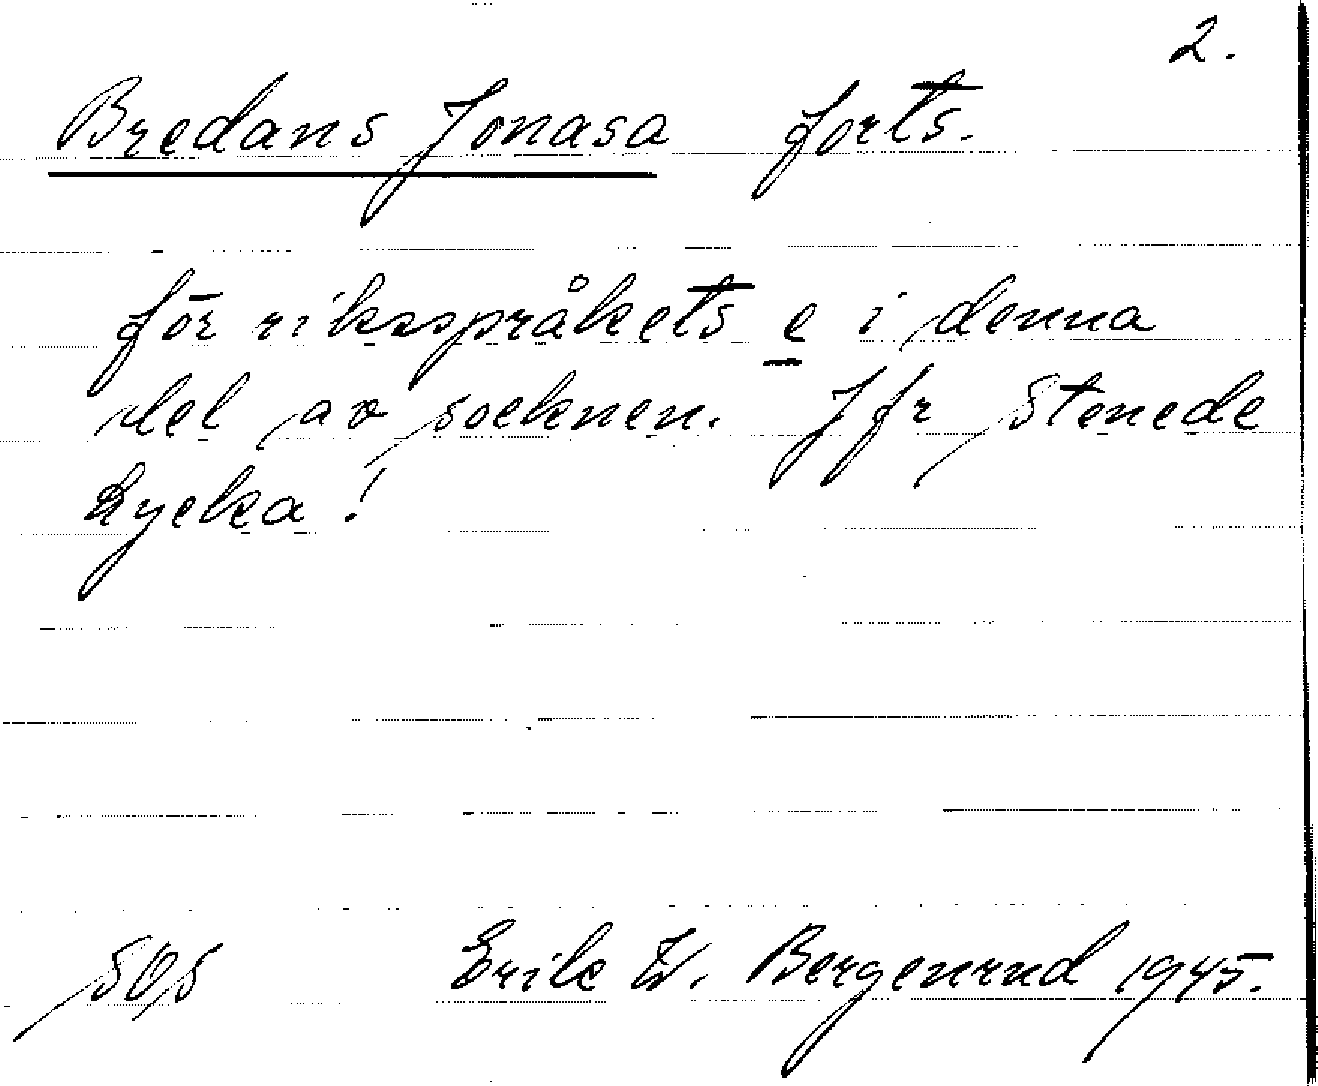 2.
Bredans Jonasa forts.
för riksspråkets e i denna
del av socknen. Jfr Stenede
kycka!
Erik W. Bergenrud 1945.